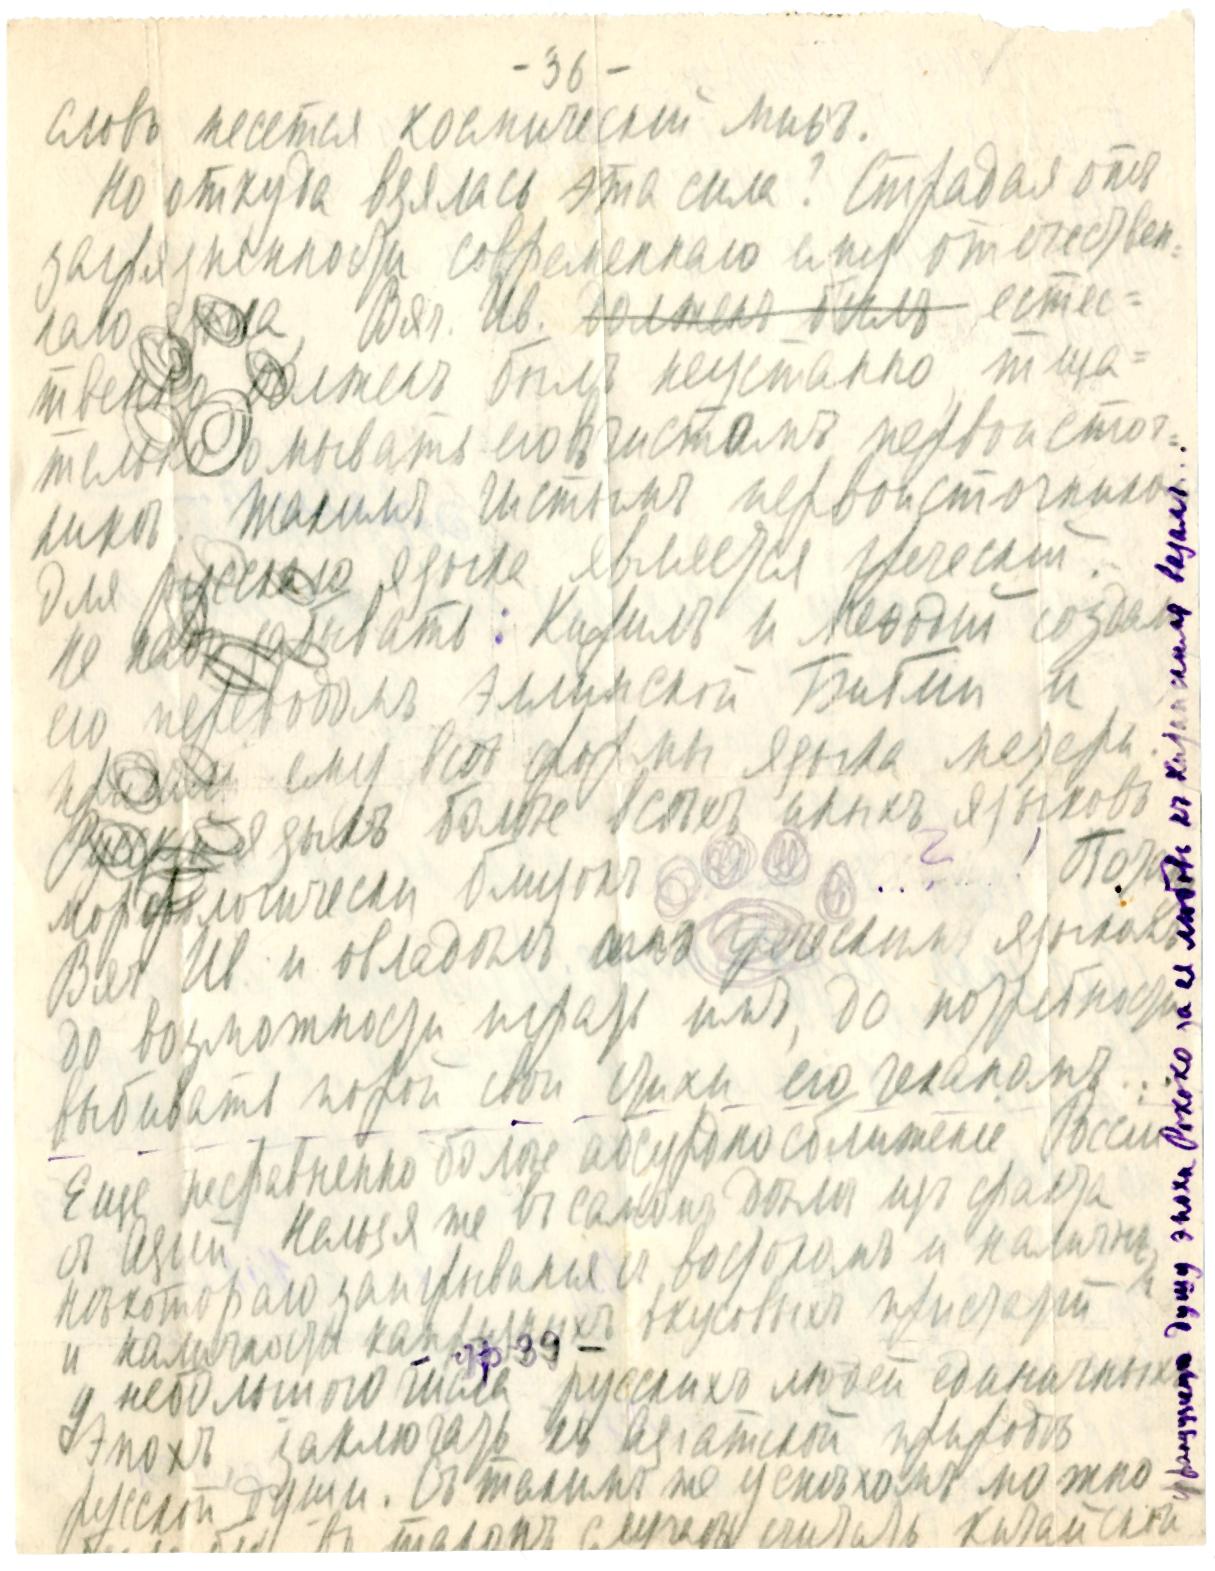 - 36 -
словъ несется космическій миѳъ.
Но откуда взялась эта сила? Страдая отъ
загрязненности современнаго ему отечествен=
наго языка, Вяч. Ив. должень былъ естес=
твенно долженъ былъ неустанно, тща=
тельно омывать его въ чистомъ первоисточ=
никѣ. Такимъ чистымъ первоисточникомъ
для русскаго языка является греческій.
Не надо забывать: Кирилъ и Меѳодій создали
его переводомъ эллинской Библіи и
придали ему всѣ формы языка матери.
Русскій языкъ болѣе всѣхъ иныхъ языковъ
морфологически близокъ ...
Вяч Ив. и овладѣлъ греческимъ языкомъ
до возможности играть имъ, до потребности
выбивать порой свои стихи его чеканомъ...
Еще несравненно болѣе абсурдно сближеніе Россіи
съ Азіей. Нельзя же въ самомъ дѣлѣ изъ факта
нѣкотораго заигрыванія съ востокомъ и
и наличности капризныхъ вкусовыхъ пристрастій
- стр 39 -
у небольшого числа русскихъ людей единичныхъ
эпохъ, заключать къ азіатской природѣ
русской души. Съ такимъ же успѣхомъ можно
было бы въ такомъ случаѣ считать китайской
французскую душу эпохи Рококо за ея любовь къ китайскимъ вазамъ...